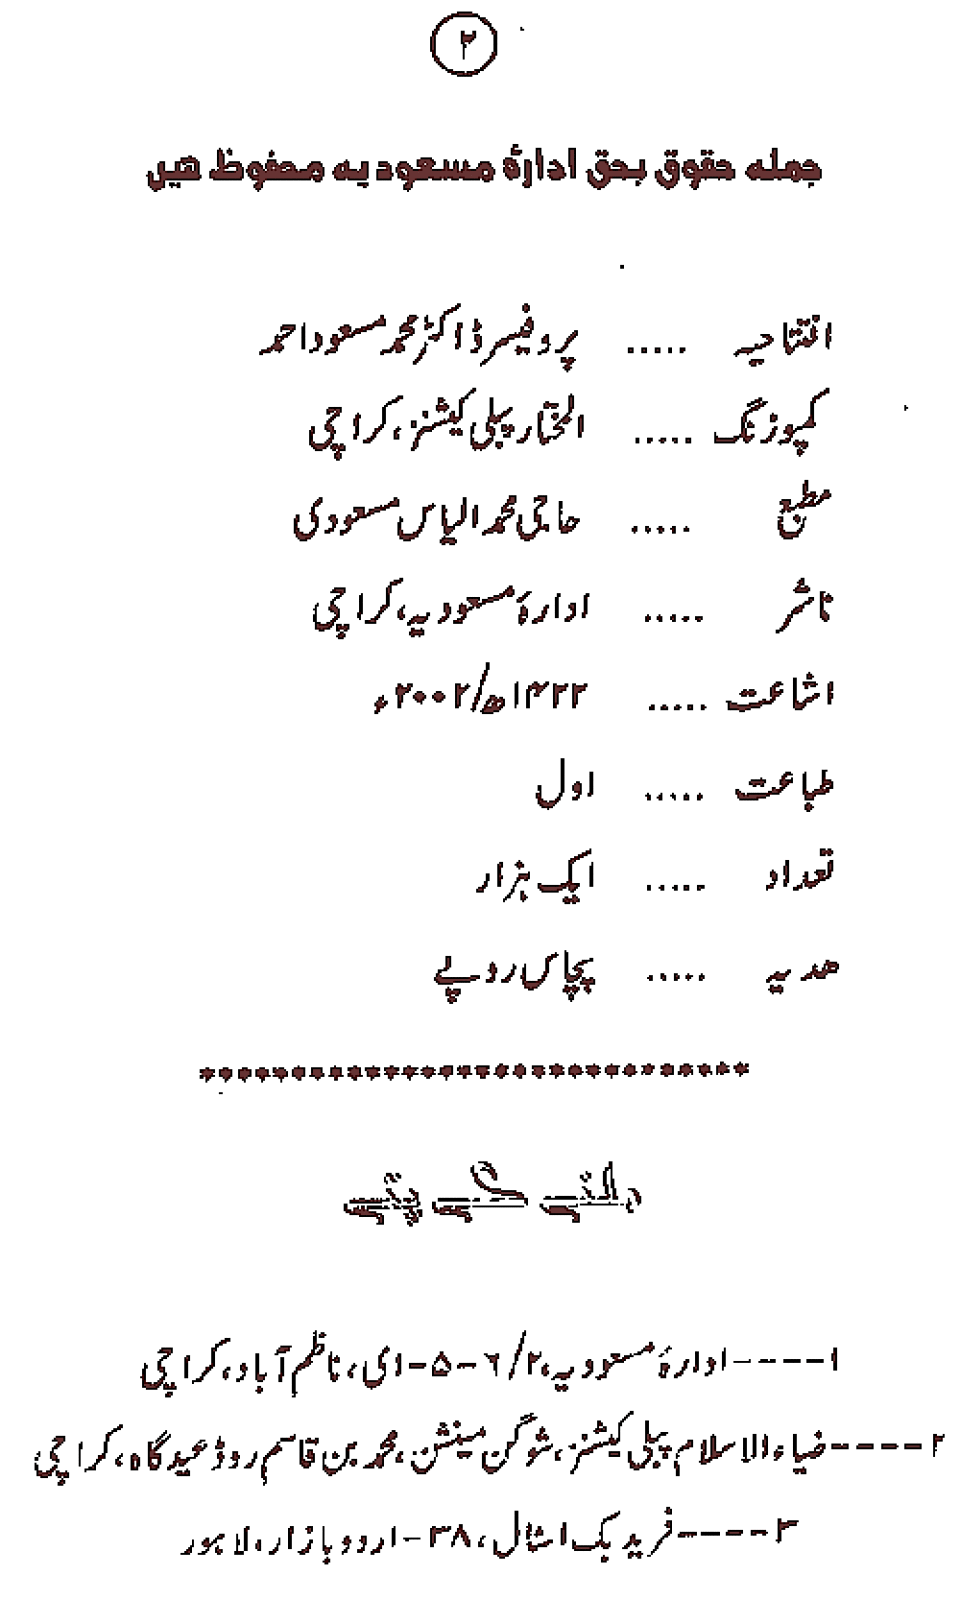 ۲
جمله حقوق بحق ادارۂ مسعودیه محفوظ هیں
افتتاحیہ ..... پروفیسر ڈاکٹر محمد مسعود احمد
کمپوزنگ ..... المختار پبلی کیشنز، کراچی
مطبع ..... حاجی محمد الیاس مسعودی
ناشر ..... ادارۂ مسعودیہ، کراچی
اشاعت ..... ۱۴۲۲ھ/۲۰۰۲ء
طباعت ..... اول
تعداد ..... ایک ہزار
ھدیہ ..... پچاس روپے
******************************
ملنے کے پتے
۱----ادارۂ مسعودیہ، ۶/۲-۵-ای، ناظم آباد، کراچی
۲----ضیاء الاسلام پبلی کیشنز، شوگن مینشن، محمد بن قاسم روڈ عیدگاہ، کراچی
۳----فرید بک اسٹال، ۳۸-اردو بازار، لاہور